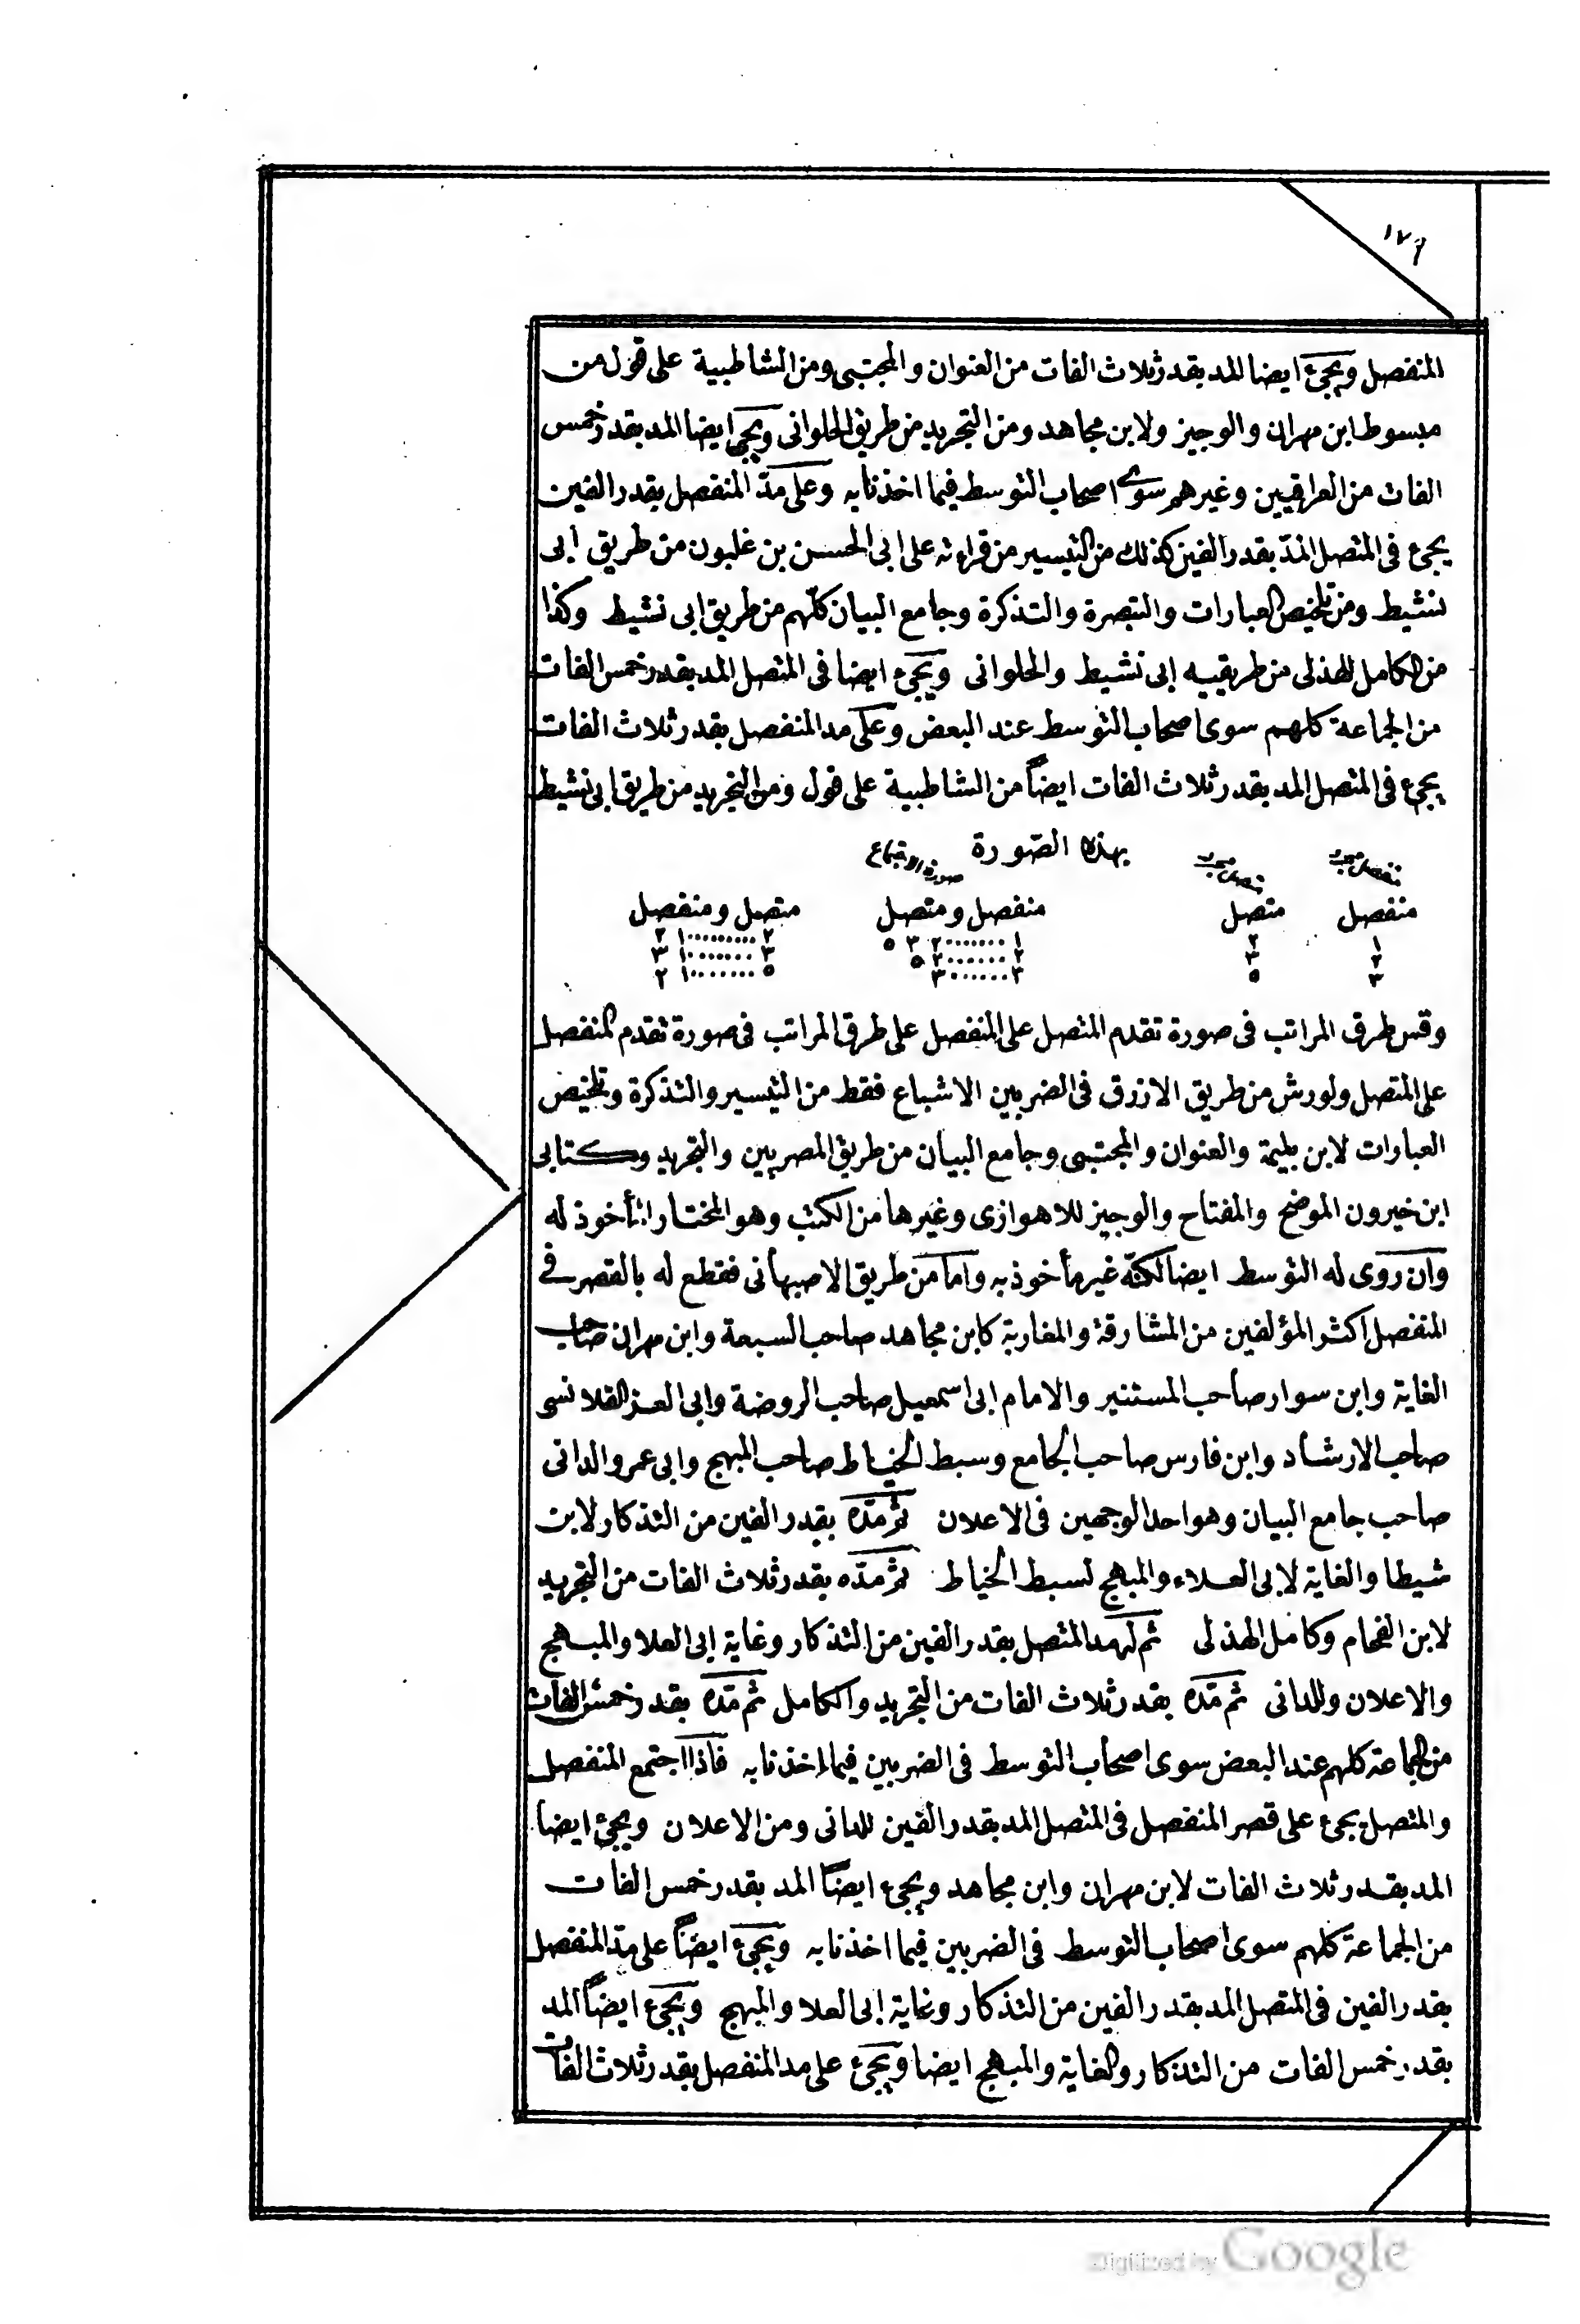 ١٧٦
المنفصل ويجئ ايضا المد بقدر ثلاث الفات من العنوان والمجتبى ومن الشاطبية على قول من
مبسوط ابن مهران والوجيز ولابن مجاهد ومن التجريد من طريق الحلوانى ويجئ ايضا المد بقدر خمس
الفات من العراقيين وغيرهم سوى اصحاب التوسط فيما اخذنا به وعلى مدّ المنفصل بقدر الفين
يجئ فى المتصل المدّ بقدر الفين كذلك من التيسير من قراءته على ابى الحسن بن غلبون من طريق ابى
نشيط ومن تلخيص العبارات والتبصرة والتذكرة وجامع البيان كلّهم من طريق ابى نشيط وكذا
من الكامل للهذلى من طريقيه ابى نشيط والحلوانى ويجئ ايضا فى المتصل المد بقدر خمس الفات
من الجماعة كلهم سوى اصحاب التوسط عند البعض وعلى مد المنفصل بقدر ثلاث الفات
يجئ فى المتصل المد بقدر ثلاث الفات ايضاً من الشاطبية على قول ومن التجريد من طريق ابى نشيط
بهذه الصّورة صورة الاجتماع
منفصل متصل منفصل ومتصل متصل ومنفصل
١ ٢ ١.......٢ ٣ ٥ ٢.........١ ٢
٢ ٣ ٢......٢ ٥ ٣.......١ ٣
٣ ٥ ٣......٣ ٥.......١ ٢
وقس طرق المراتب فى صورة تقدم المتصل على المنفصل على طرق المراتب فى صورة تقدم المنفصل
على المتصل ولورش من طريق الازرق فى الضربين الاشباع فقط من التيسير والتذكرة وتلخيص
العبارات لابن بليمة والعنوان والمجتبى وجامع البيان من طريق المصريين والتجريد وكتابى
ابن خيرون الموضح والمفتاح والوجيز للاهوازى وغيرها من الكتب وهو المختار المأخوذ له
وان روى له التوسط ايضا لكنّه غير مأخوذ به واما من طريق الاصبهانى فقطع له بالقصر فى
المنفصل اكثر المؤلفين من المشارقة والمغاربة كابن مجاهد صاحب السبعة وابن مهران صاحب
الغاية وابن سوار صاحب المستنير والامام ابى اسمعيل صاحب الروضة وابى العز القلانسى
صاحب الارشاد وابن فارس صاحب الجامع وسبط الخياط صاحب المبهج وابى عمرو الدانى
صاحب جامع البيان وهو احد الوجهين فى الاعلان ثم مدّه بقدر الفين من التذكار لابن
شيطا والغاية لابى العلاء والمبهج لسبط الخياط ثم مدّه بقدر ثلاث الفات من التجريد
لابن الفحام وكامل الهذلى ثم لهم المتصل بقدر الفين من التذكار وغاية ابى العلا والمبهج
والاعلان وللدانى ثم مدّه بقدر ثلاث الفات من التجريد والكامل ثم مدّه بقدر خمس الفات
من الجماعة كلهم عند البعض سوى اصحاب التوسط فى الضربين فيما اخذنا به فاذا اجتمع المنفصل
والمتصل يجئ على قصر المنفصل فى المتصل المد بقدر الفين للدانى ومن الاعلان ويجئ ايضا
المد بقدر ثلاث الفات لابن مهران وابن مجاهد ويجئ ايضاً المد بقدر خمس الفات
من الجماعة كلهم سوى اصحاب التوسط فى الضربين فيما اخذنا به ويجئ ايضاً على مدّ المنفصل
بقدر الفين فى المتصل المد بقدر الفين من التذكار وغاية ابى العلا والمبهج ويجئ ايضاً المد
بقدر خمس الفات من التذكار والغاية والمبهج ايضا ويجئ على مد المنفصل بقدر ثلاث الفات
Digitized by Google